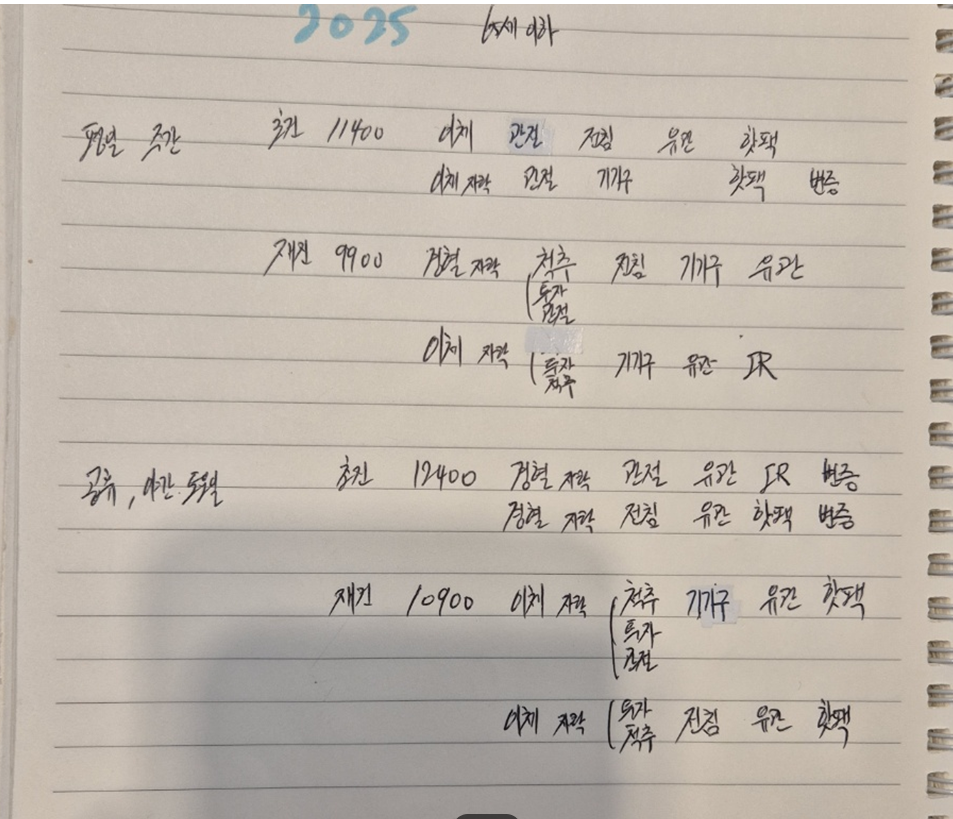 2025 65세 이하
평일 주간 초진 11400 이체 관절 전침 유관 핫팩
이체 자락 관절 기기구 핫팩 변증
재진 9900 경혈 자락 척추 전침 기기구 유관
투자
관절
이체 자락 투자 기기구 유관 IR
척추
공휴, 야간 토요일 초진 12400 경혈 자락 관절 유관 IR 변증
경혈 자락 전침 유관 핫팩 변증
재진 10900 이체 자락 척추 기기구 유관 핫팩
투자
관절
이체 자락 투자 전침 유관 핫팩
척추